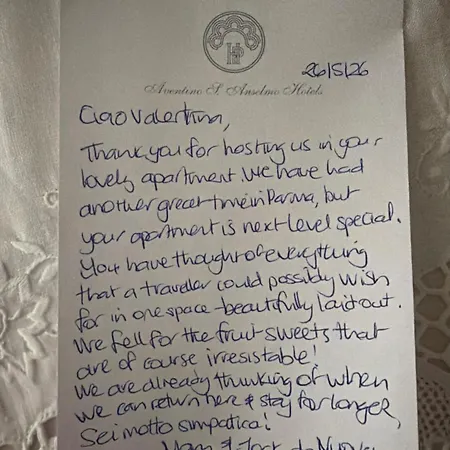 26/5/26
Aventino S. Anselmo Hotels
Ciao Valentina,
Thank you for hosting us in your
lovely apartment. We have had
another great time in Parma, but
your apartment is next level special.
You have thought of everything
that a traveller could possibly wish
for in one space - beautifully laid out.
We fell for the fruit sweets that
are of course irresistable!
We are already thinking of when
we can return here & stay for longer,
Sei molto simpatica!